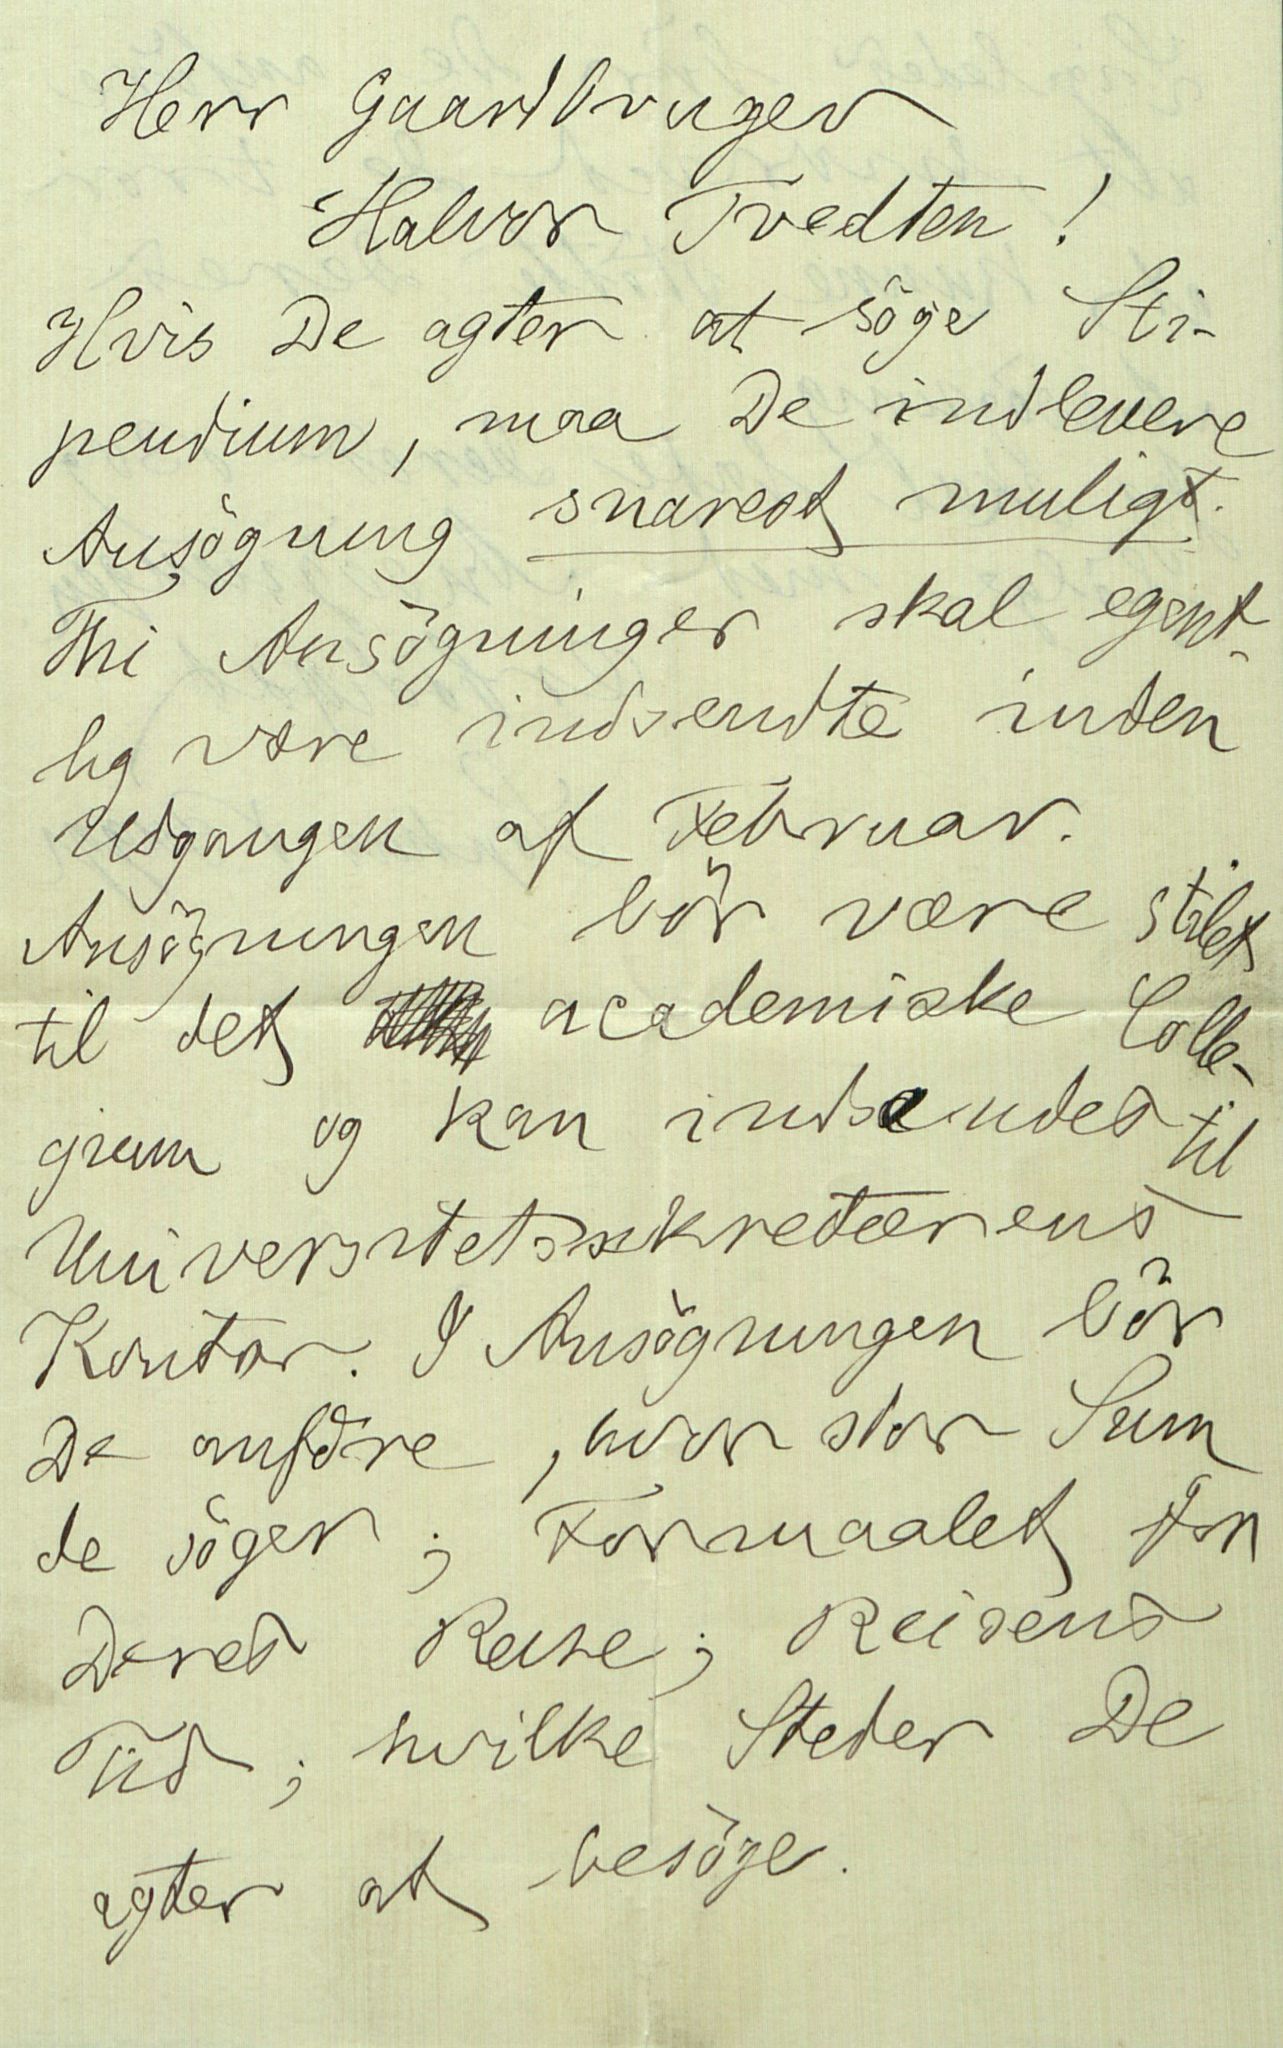 Herr Gaardbruger
Halvor Tvedten!
Hvis De agter at söge Sti-
pendium, maa De indlevere
Ansögning snarest muligt.
Thi Ansögninger skal egent-
lig være indsendte inden
Udgangen af Februar.
Ansögningen bör være stilet
til det academiske Colle-
gium og kan indsendes til
Universitetssekretærens
Kontor. I Ansögningen bör
De anföre, hvor stor Sum
de söger; Formaalet for
Deres Reise; Reisens
Tid; hvilke Steder De
agter at besöge.